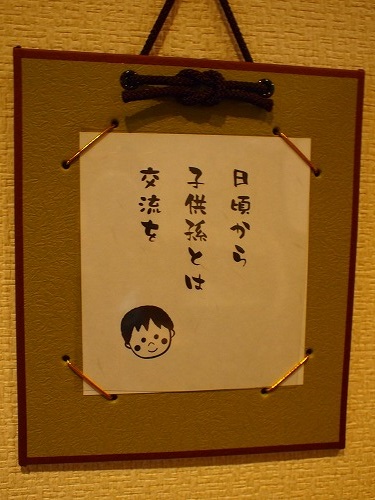 日頃から
子供孫とは
交流を